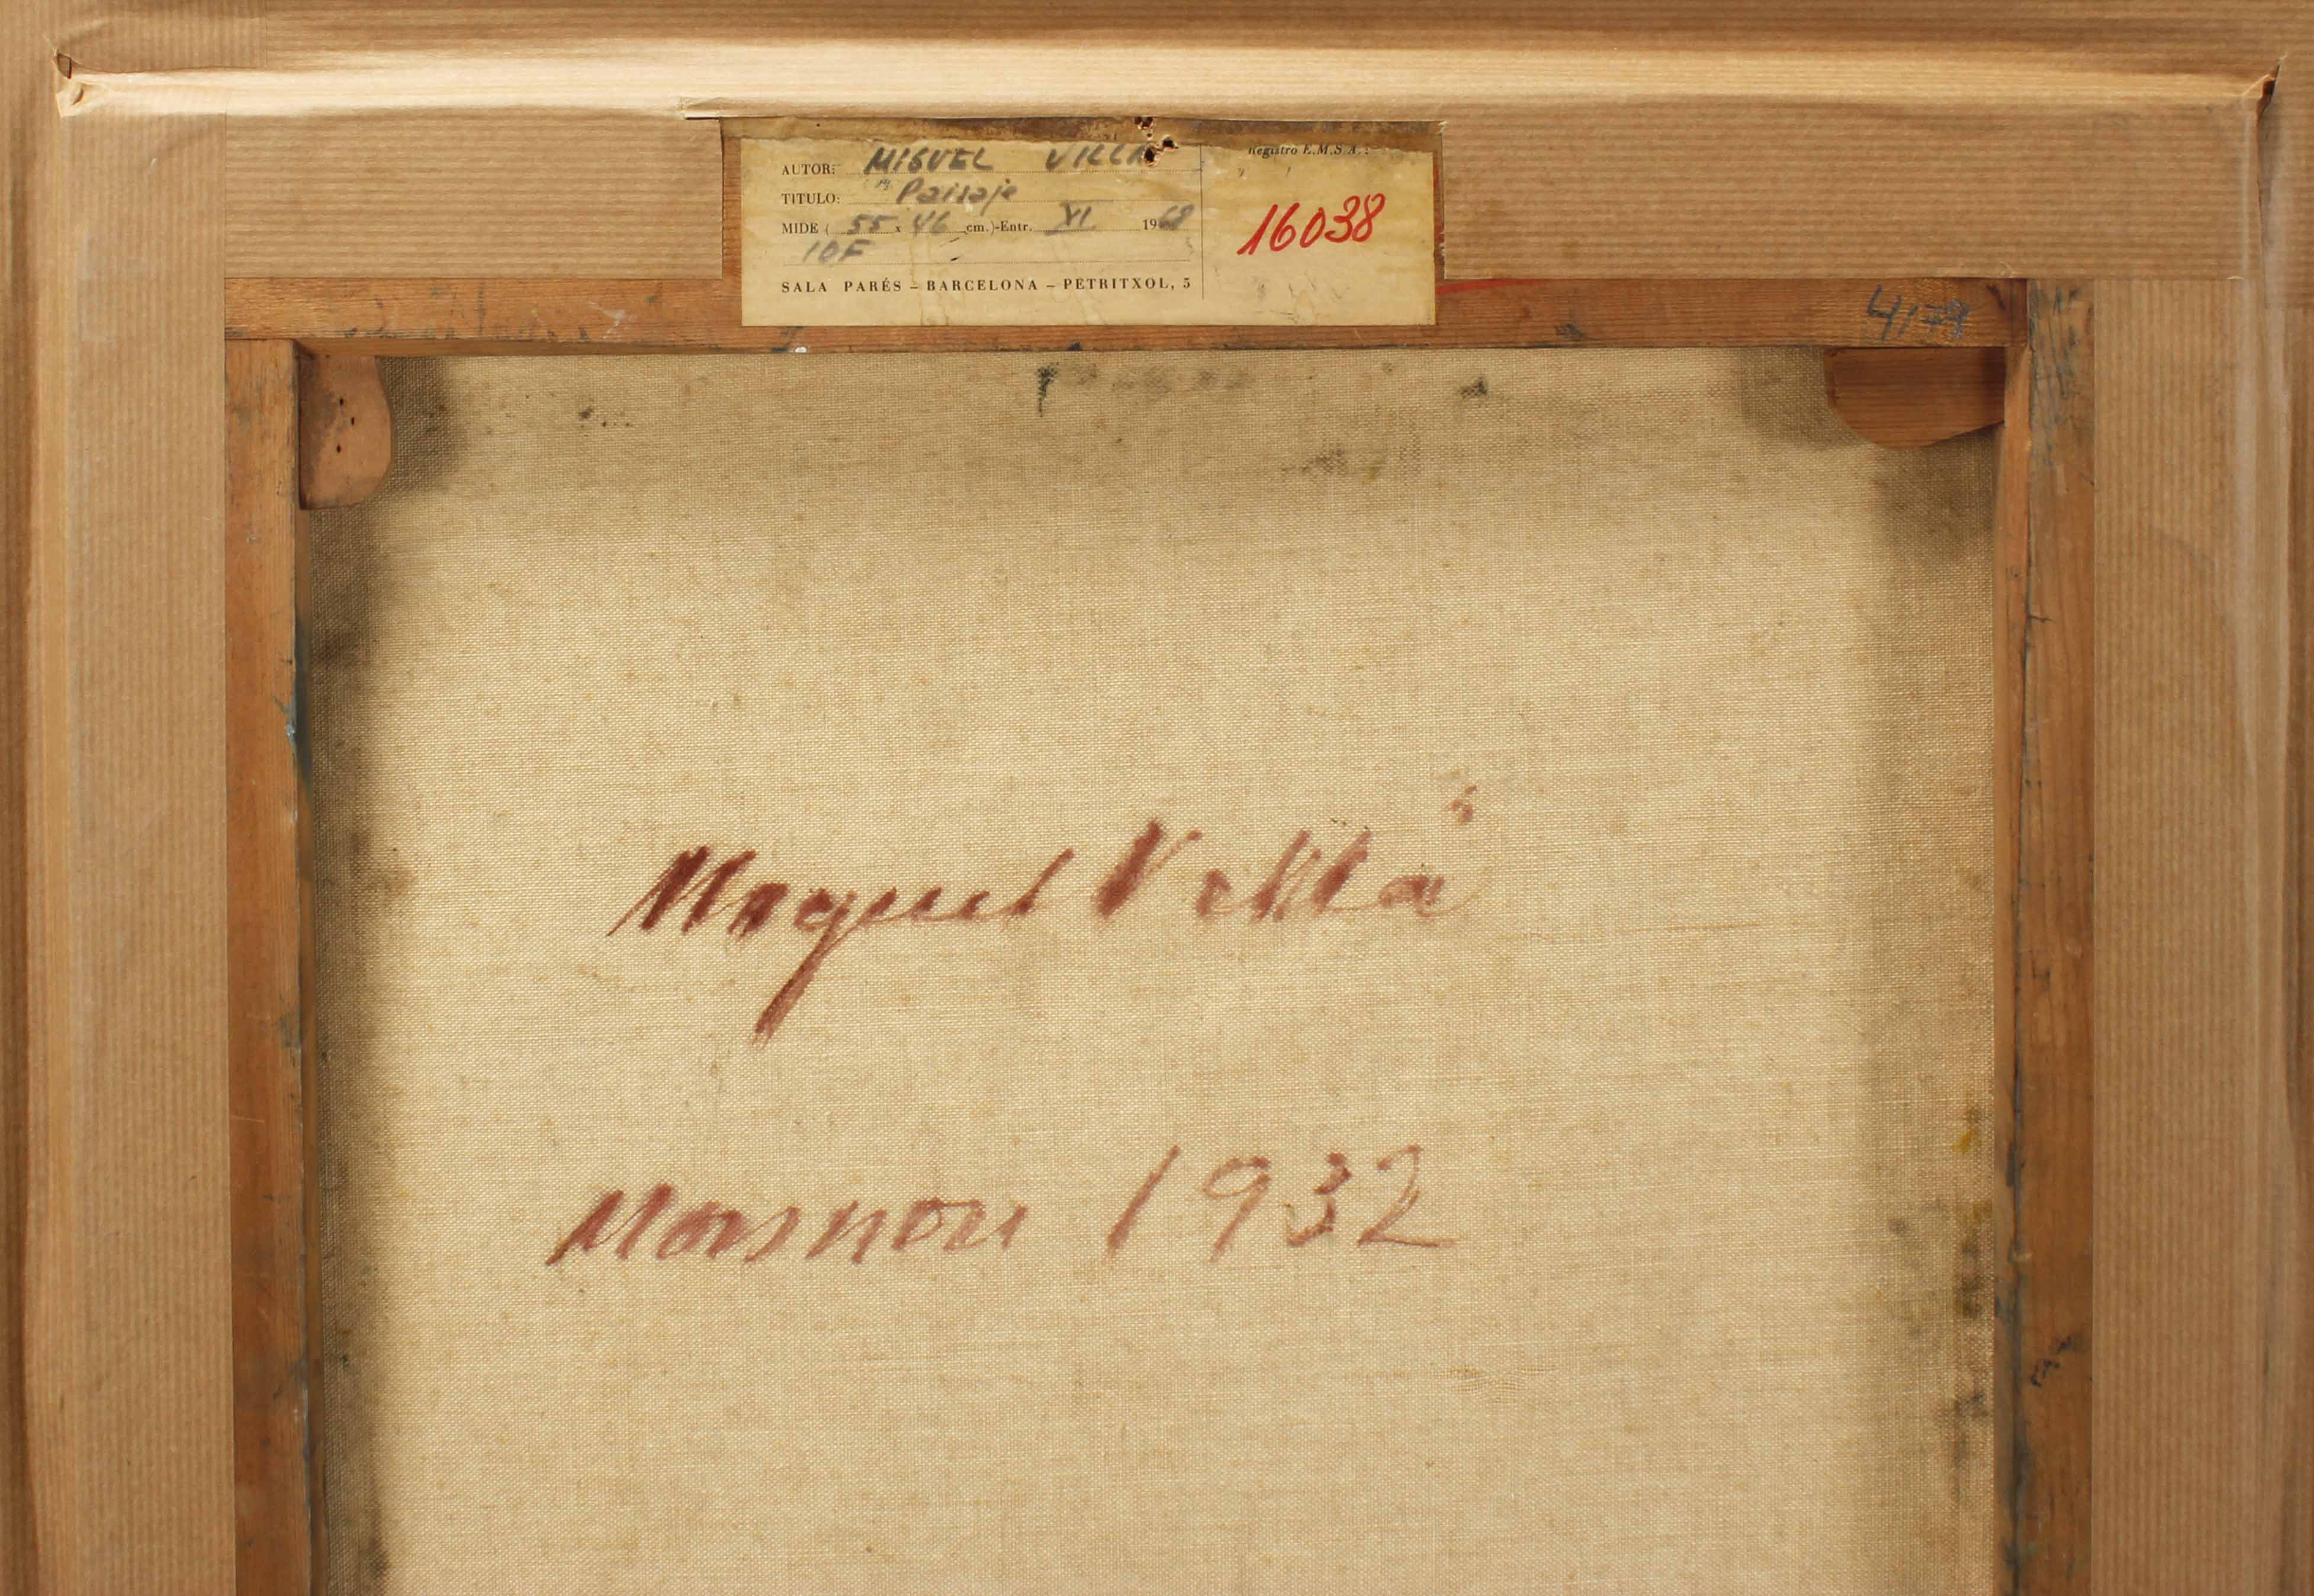 AUTOR: MIGUEL VILLA
TITULO: "Paisaje
MIDE ( 55 x 46 cm.)-Entr. XI 1968
10F
SALA PARÉS – BARCELONA – PETRITXOL, 5
Registro E.M.S.A. :
16038
Miguel Villá
Masnou 1932